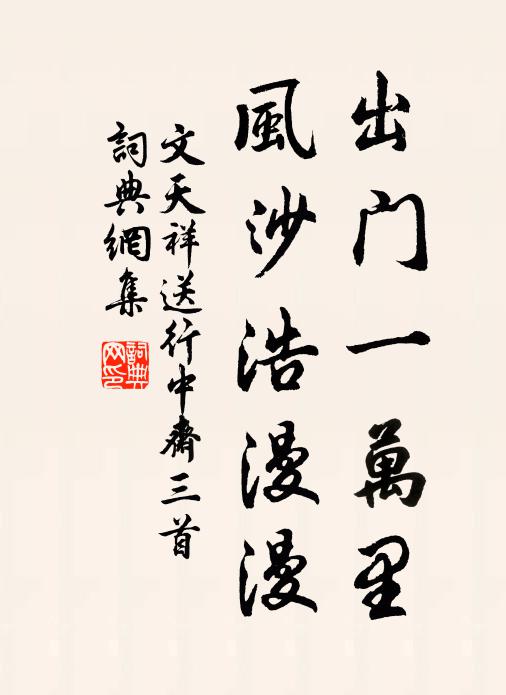 出门一萬里
風沙浩漫漫
文天祥送行中齋三首
詞典網集
詞典網印